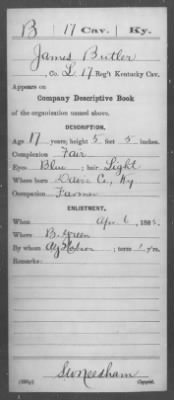 B | 17 Cav. | Ky.
James Butler
, Co. L 17 Reg't Kentucky Cav.
Appears on
Company Descriptive Book
of the organization named above.
DESCRIPTION.
Age 17 years; height 5 feet 5 inches.
Complexion Fair
Eyes Blue ; hair Light
Where born Daviess Co., Ky
Occupation Farmer
ENLISTMENT.
When Apr. 6 , 1865.
Where B. Green
By whom ; term 1 y'rs.
Remarks:
Needham
Copyist.